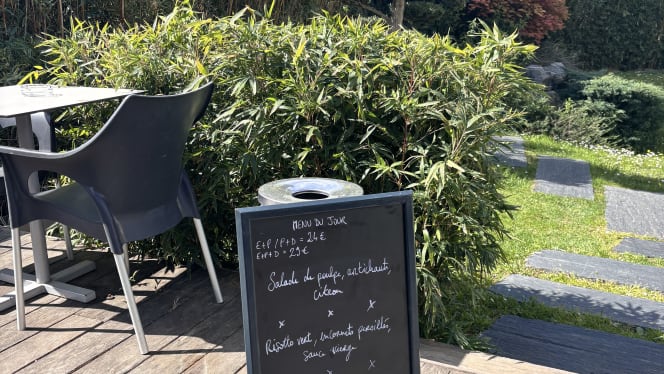 MENU DU JOUR
E+P / P+D = 24€
E+P+D = 29€
Salade de poulpe, artichauts,
citron
x x
Risotto vert, encornets persillés,
sauce vierge
x x